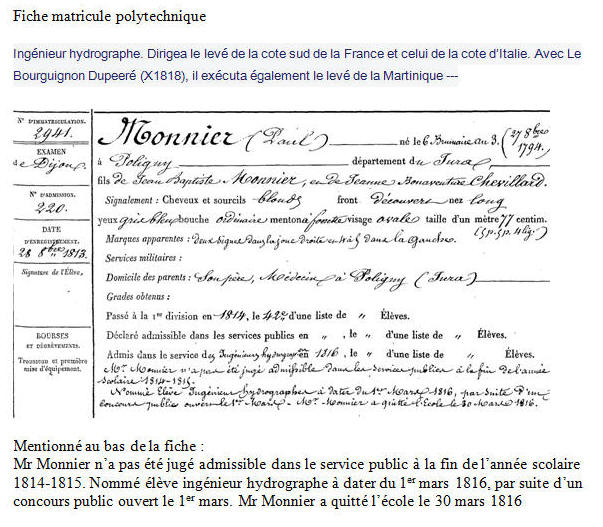 Fiche matricule polytechnique
Ingénieur hydrographe. Dirigea le levé de la cote sud de la France et celui de la cote d'Italie. Avec Le
Bourguignon Dupeeré (X1818), il exécuta également le levé de la Martinique ---
N° D'IMMATRICULATION.
2941.
EXAMEN
de Dijon
N° D'ADMISSION.
220.
DATE
D'ENREGISTREMENT.
28 8bre 1813.
Signature de l'Élève,
BOURSES
ET DÉGRÈVEMENTS.
Trousseau et première
mise d'équipement.
Monnier (Paul) né le 6 Brumaire an 3. (27 8bre 1794.)
à Poligny département du Jura
fils de Jean Baptiste Monnier, et de Jeanne Bonaventure Chevillard.
Signalement : Cheveux et sourcils blonds front Découvert nez long
yeux gris bleu bouche ordinaire menton à fossette visage ovale taille d'un mètre 77 centim.
Marques apparentes : deux signes dans la joue droite et dans la Gauche. (5p. 5p. 4lig.)
Services militaires :
Domicile des parents : Son père, Médecin à Poligny (Jura)
Grades obtenus :
Passé à la 1re division en 1814, le 42e d'une liste de " Élèves.
Déclaré admissible dans les services publics en " , le " d'une liste de " Élèves.
Admis dans le service des Ingénieurs hydrogr. en 1816, le " d'une liste de " Élèves.
Mr. Monnier n'a pas été jugé admissible dans les services publics à la fin de l'année
scolaire 1814-1815.
Nommé Elève Ingénieur hydrographe à dater du 1er Mars 1816, par suite d'un
concours public ouvert le 1er Mars. Mr. Monnier a quitté l'Ecole le 30 Mars 1816.
Mentionné au bas de la fiche :
Mr Monnier n'a pas été jugé admissible dans le service public à la fin de l'année scolaire
1814-1815. Nommé élève ingénieur hydrographe à dater du 1er mars 1816, par suite d'un
concours public ouvert le 1er mars. Mr Monnier a quitté l'école le 30 mars 1816